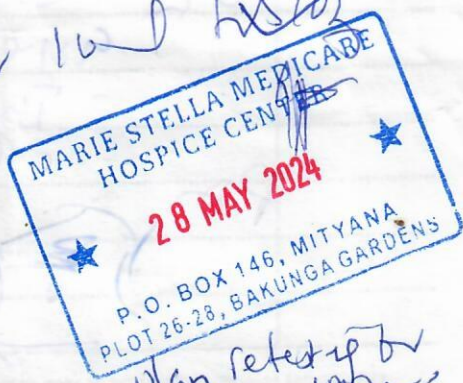 MARIE STELLA MEDICARE
HOSPICE CENTER
28 MAY 2024
P.O. BOX 146, MITYANA
PLOT 26-28, BAKUNGA GARDENS
plan